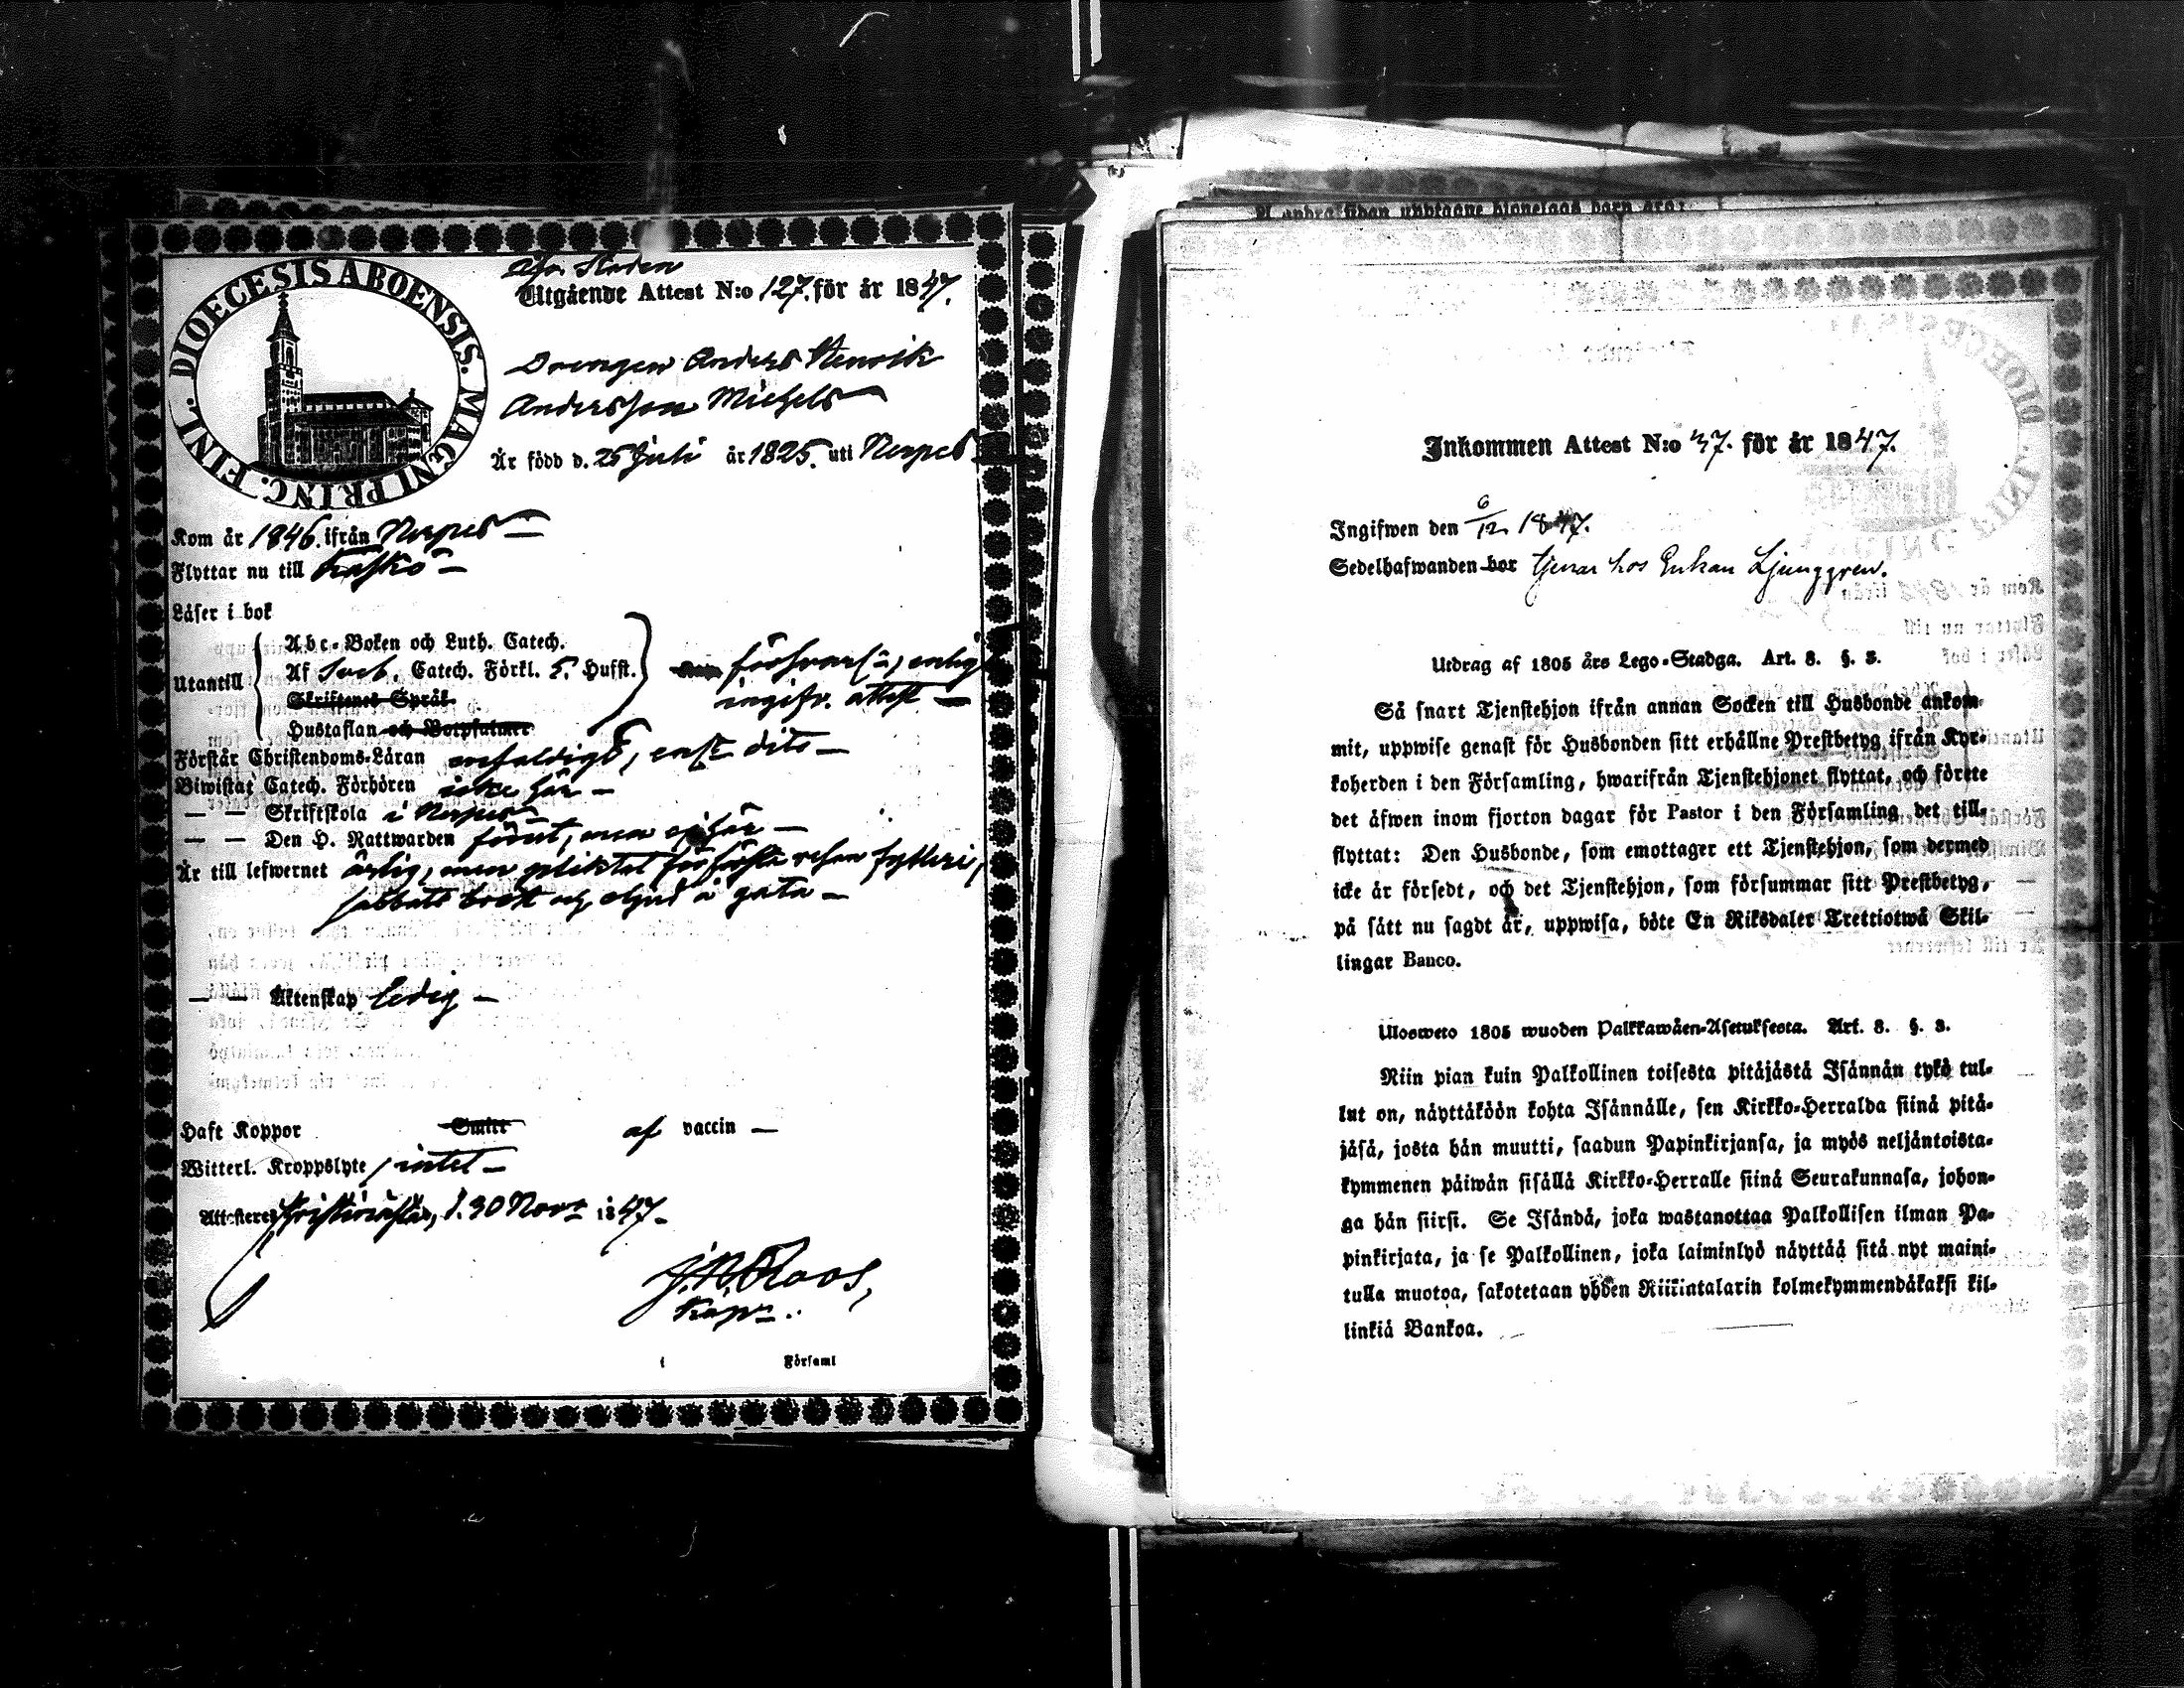 DIOECESIS ABOENSIS. MAGNI PRINC. FINL.
Staden
Utgående Attest N:o 127. för år 1847.
Drengen Anders Henrik
Andersson Michels
Är född d. 25 Juli år 1825. uti Nerpes
Kom år 1846. ifrån Nerpes
Flyttar nu till Kaskö
Läser i bok
Utantill
Abc-Boken och Luth. Catech.
Af Sveb. Catech. Förkl. 5. Hufst.
Skriftenes Språk.
Hustaflan och Botpsalmer
försvarl:, enligt
ingifv. attest
Förstår Christendoms-Läran enfaldigt, enl. dito
Biwistat Catech. Förhören icke här
— — Skriftskola i Nerpes
— — Den H. Nattwarden förut, men ej här
Är till lefwernet ärlig, men pliktat för första resan fylleri,
sabbats brott och oljud å gata
— — Äktenskap ledig
Haft Koppor Smitt af vaccin
Witterl. Kroppslyte intet
Attesteras Kristinestad, d. 30 Nov. 1847.
J. N. Roos,
Kapn.
i Församl
Inkommen Attest N:o 47. för år 1847.
Ingifwen den 6/12 1847.
Sedelhafwanden bor tjenar hos Enkan Ljunggren.
Utdrag af 1805 års Lego-Stadga. Art. 8. §. 3.
Så snart Tjenstehjon ifrån annan Socken till Husbonde ankom-
mit, uppwise genast för Husbonden sitt erhållne Prestbetyg ifrån Kyr-
koherden i den Församling, hwarifrån Tjenstehjonet flyttat, och förete
det äfwen inom fjorton dagar för Pastor i den Församling det till-
flyttat: Den Husbonde, som emottager ett Tjenstehjon, som dermed
icke är försedt, och det Tjenstehjon, som försummar sitt Prestbetyg,
på sätt nu sagdt är, uppwisa, böte En Riksdaler Trettiotwå Skil-
lingar Banco.
Ulosweto 1805 wuoden Palkkawäen-Asetuksesta. Art. 8. §. 3.
Niin pian kuin Palkollinen toisesta pitäjästä Isännän tykö tul-
lut on, näyttäköön kohta Isännälle, sen Kirkko-Herralda siinä pitä-
jäsä, josta hän muutti, saadun Papinkirjansa, ja myös neljäntoista-
kymmenen päiwän sisällä Kirkko-Herralle siinä Seurakunnasa, johon-
ga hän siirsi. Se Isändä, joka wastanottaa Palkollisen ilman Pa-
pinkirjata, ja se Palkollinen, joka laiminlyö näyttää sitä nyt maini-
tulla muotoa, sakotetaan yhden Riikintalarin kolmekymmendäkaksi kil-
linkiä Bankoa.